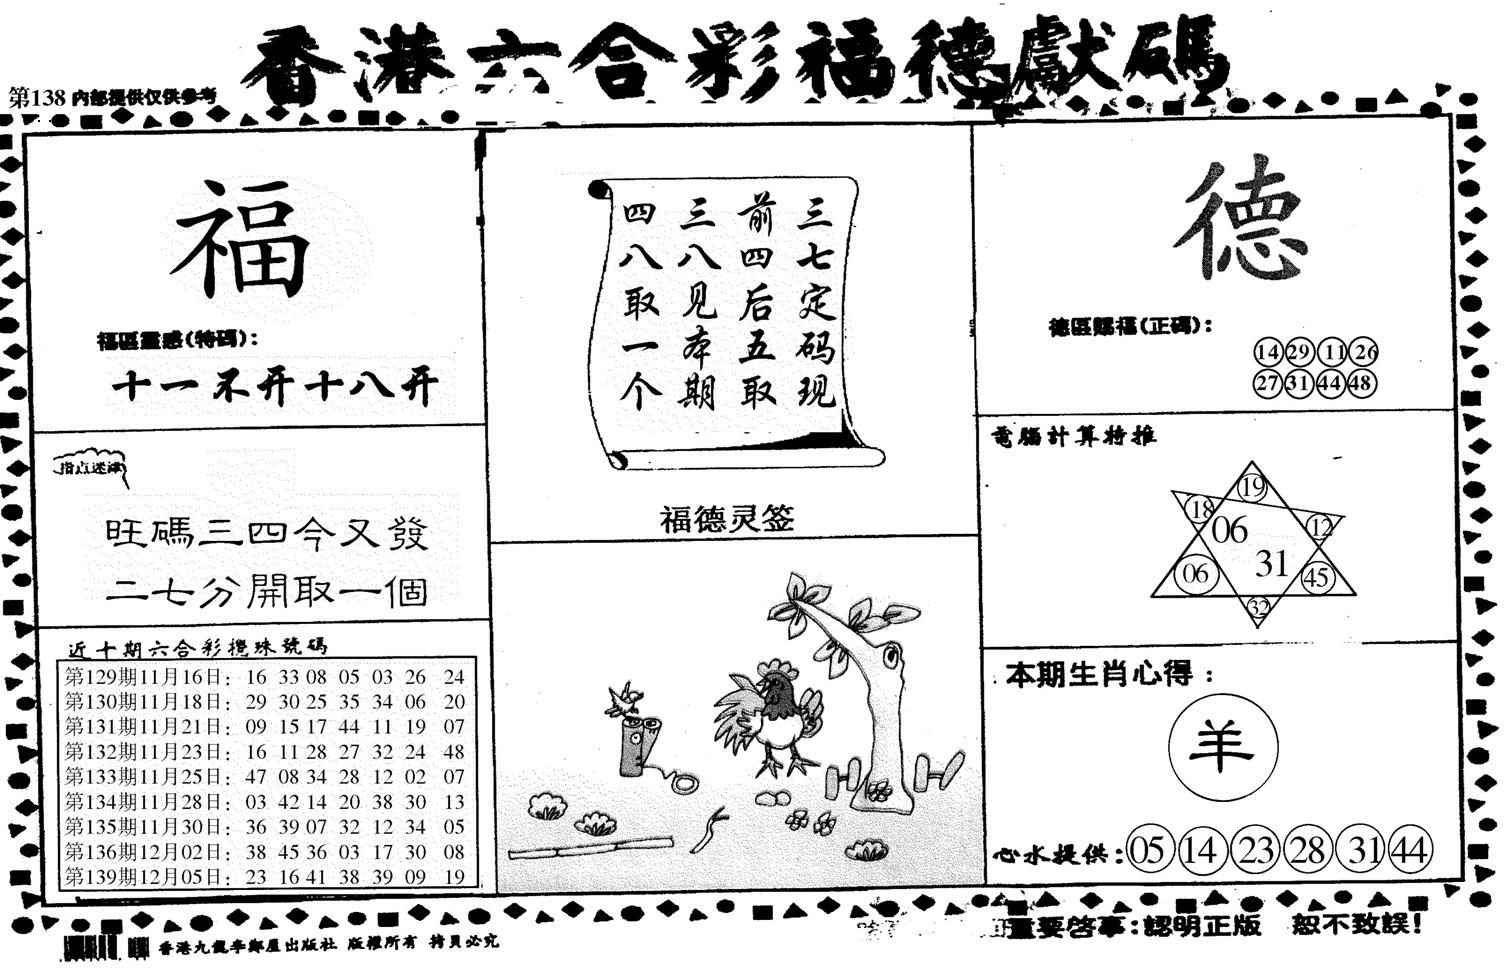 香港六合彩福德獻碼
第138 内部提供仅供参考
福
福區靈感(特碼):
十一不开十八开
指点迷津
旺碼三四今又發
二七分開取一個
近十期六合彩攪珠號碼
第129期11月16日: 16 33 08 05 03 26 24
第130期11月18日: 29 30 25 35 34 06 20
第131期11月21日: 09 15 17 44 11 19 07
第132期11月23日: 16 11 28 27 32 24 48
第133期11月25日: 47 08 34 28 12 02 07
第134期11月28日: 03 42 14 20 38 30 13
第135期11月30日: 36 39 07 32 12 34 05
第136期12月02日: 38 45 36 03 17 30 08
第139期12月05日: 23 16 41 38 39 09 19
三七定码现
前四后五取
三八见本期
四八取一个
福德灵签
德
德區賜福(正碼):
14 29 11 26
27 31 44 48
電腦計算特推
19
18
12
06
31
06
45
32
本期生肖心得:
羊
心水提供: 05 14 23 28 31 44
香港九龍李鄭屋出版社 版權所有 拷貝必究
重要啓事:認明正版 恕不致誤!